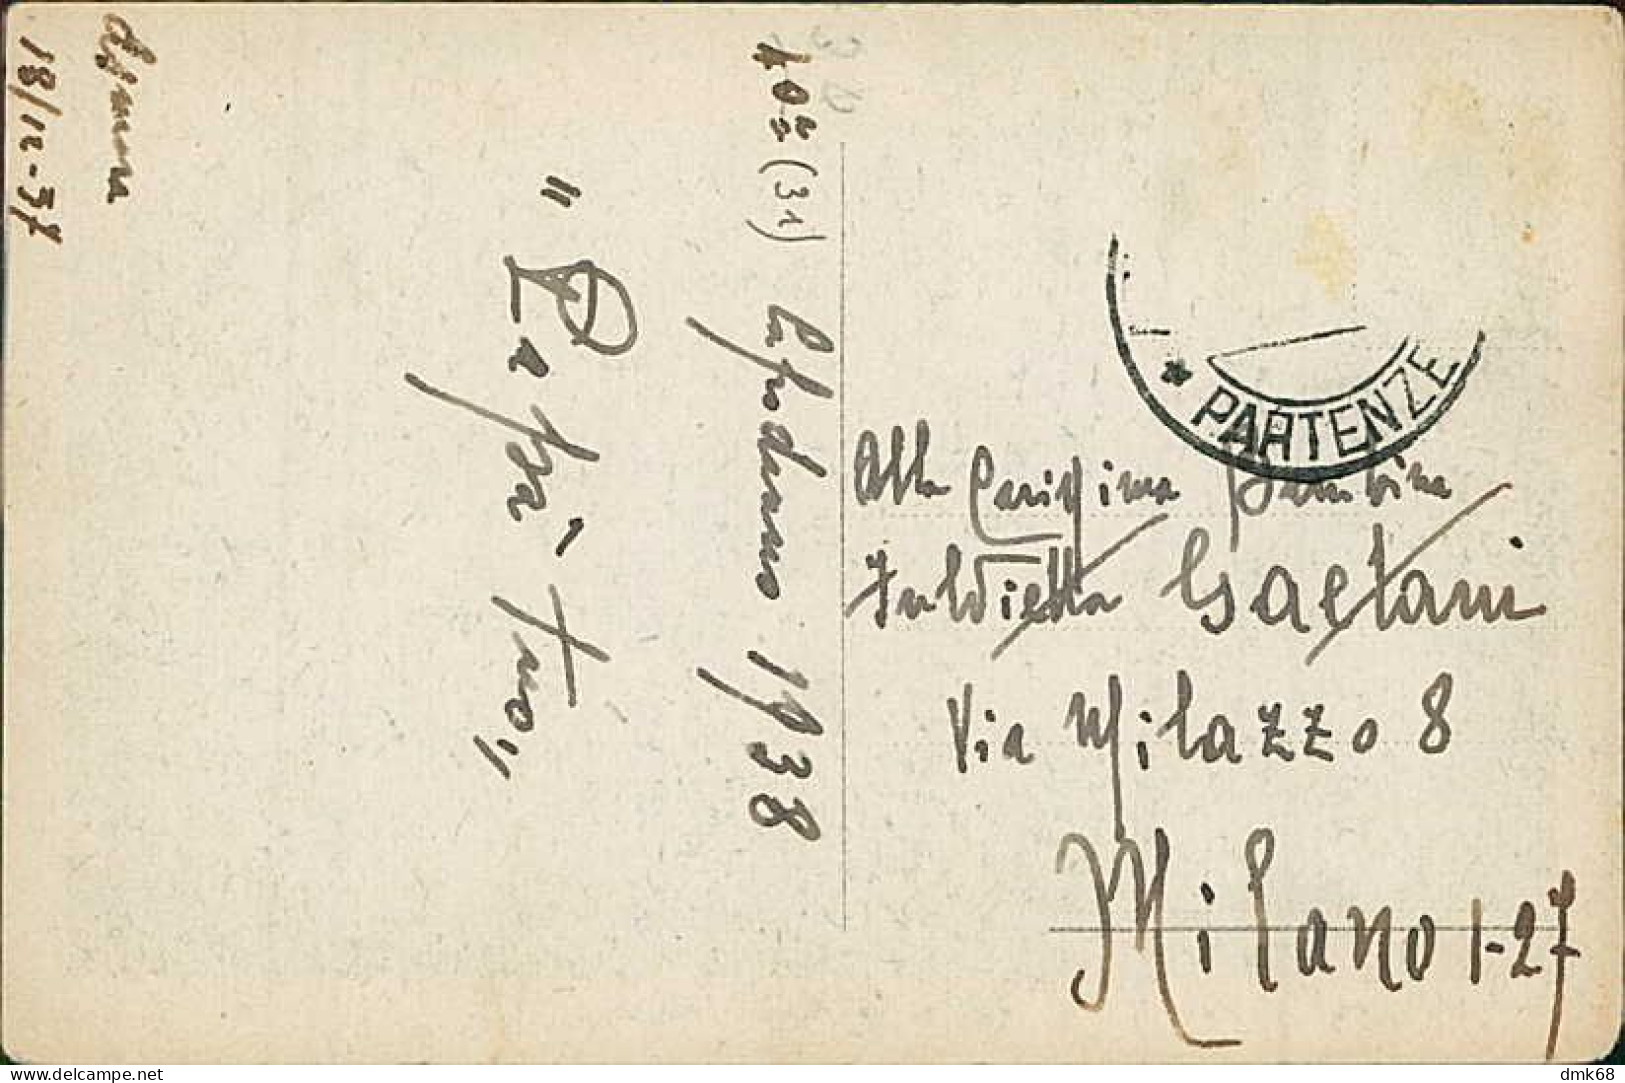 Asmara
18/12-37
(31) Capodanno 1938
"Papà tuo,
PARTENZE
Alla Carissima Bambina
Gaetani
Via Milazzo 8
Milano 1-27
delcampe.net
dmk68